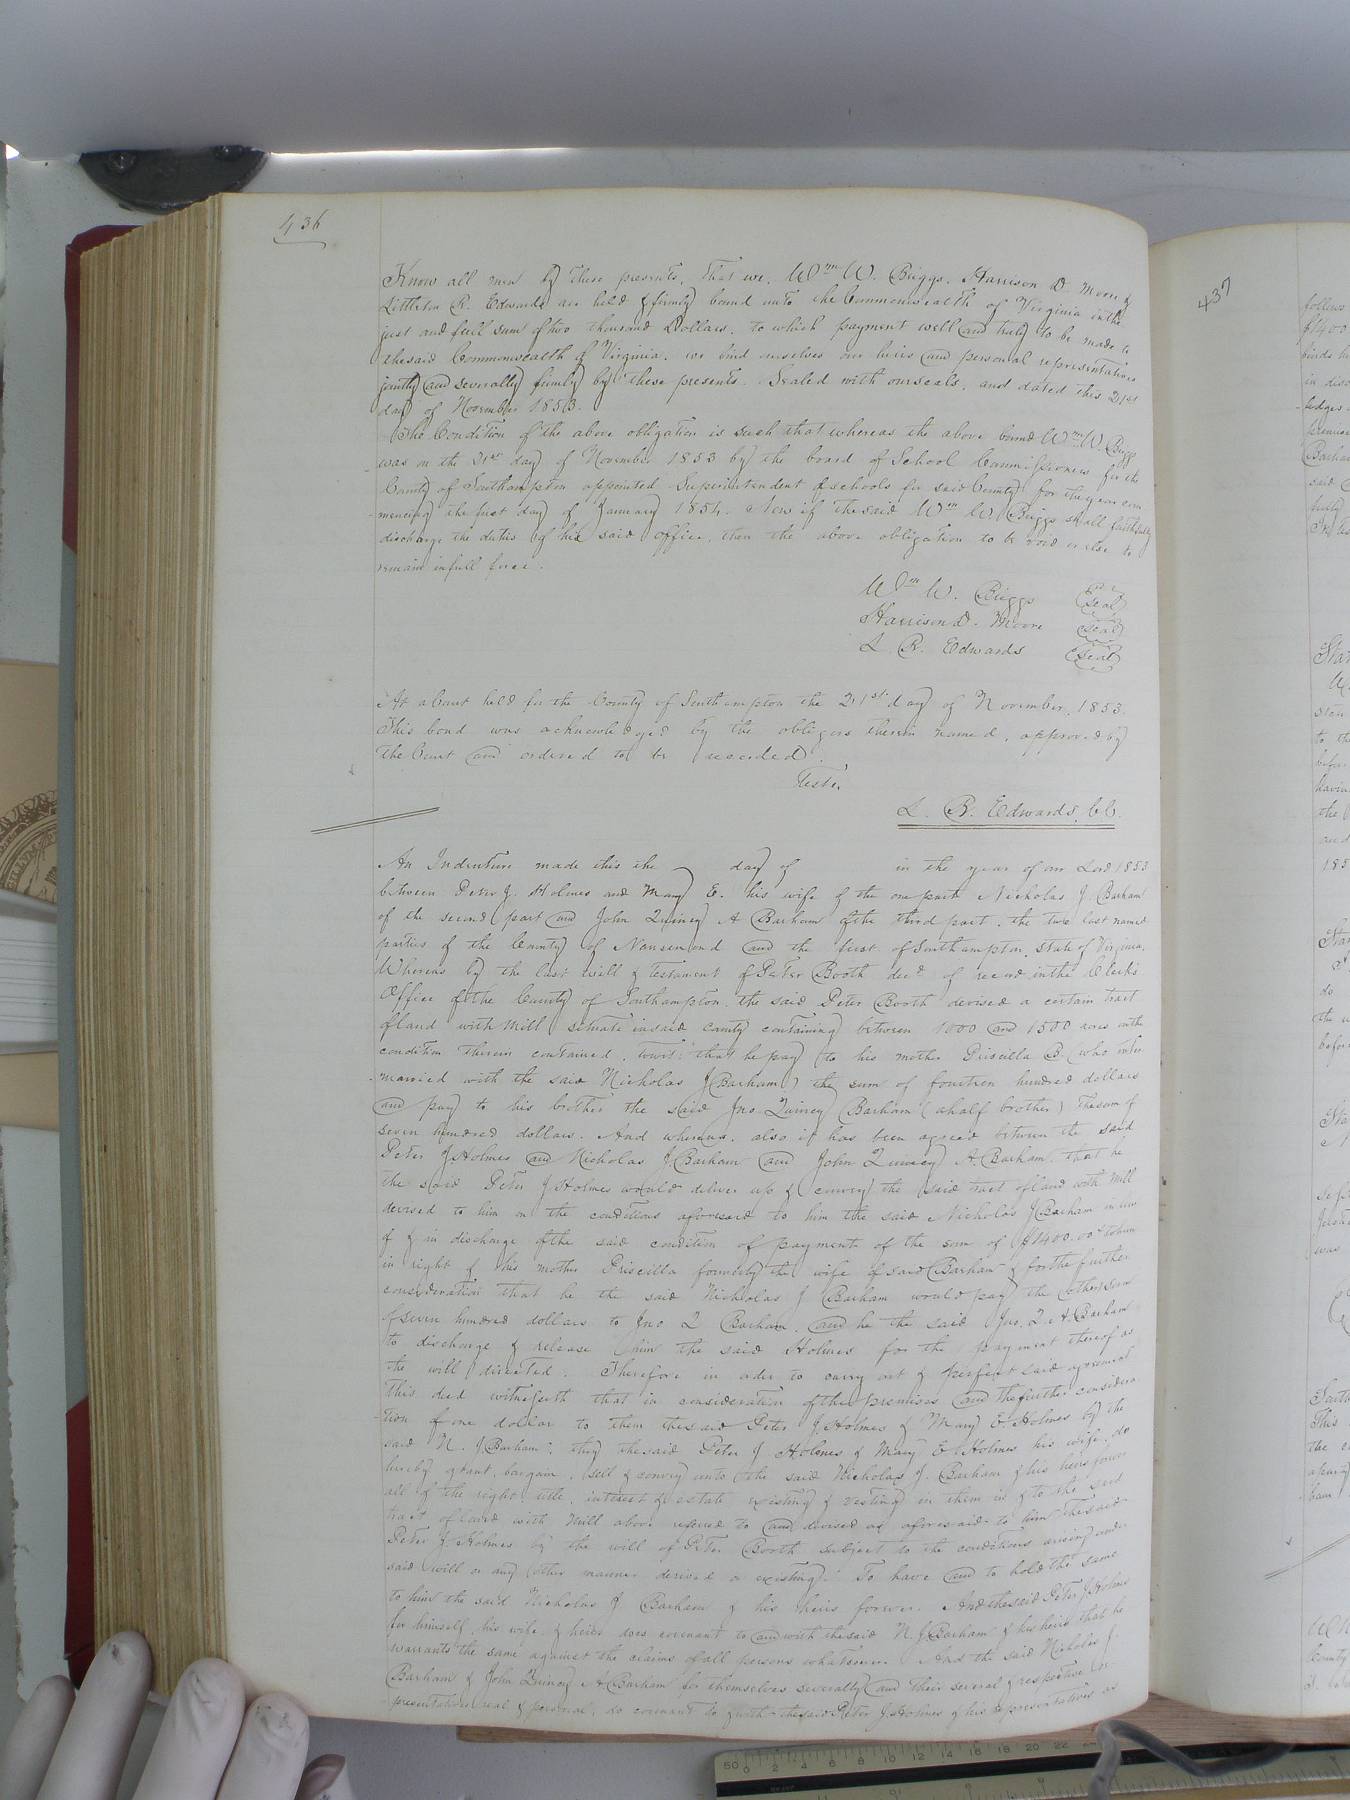 436
Know all men by these presents, that we, Wm W. Briggs, Harrison D Moore &
Littleton R. Edwards are held & firmly bound unto the Commonwealth of Virginia in the
just and full sum of two thousand Dollars, to which payment well and truly to be made to
the said Commonwealth of Virginia, we bind ourselves our heirs and personal representatives
jointly and severally firmly by these presents. Sealed with our seals, and dated this 21st
day of November 1853.
The Condition of the above obligation is such that whereas the above bound Wm W. Briggs
was on the 21st day of November 1853 by the board of School Commissioners for the
County of Southampton appointed Superintendent of schools for said County for the year com
mencing the first day of January 1854. Now if the said Wm W. Briggs shall faithfully
discharge the duties of his said office, then the above obligation to be void or else to
remain in full force.
Wm W. Briggs (Seal)
Harrison D. Moore (Seal)
L. R. Edwards (Seal)
At a Court held for the County of Southampton the 21st day of November, 1853.
This bond was acknowledged by the obligors therein named, approved by
the Court and ordered to be recorded.
Teste,
L. R. Edwards, CC.
An Indenture made this the day of in the year of our Lord 1853
between Peter J. Holmes and Mary E. his wife of the one part Nicholas J. Barham
of the second part and John Quincy A Barham of the third part, the two last named
parties of the County of Nansemond and the first of Southampton, State of Virginia.
Whereas by the last will & testament of Peter Booth decd of record in the Clerk's
Office of the County of Southampton, the said Peter Booth devised a certain tract
of land with Mill situate in said county containing between 1000 and 1500 acres on the
condition therein contained, towit: that he pay to his mother Priscilla B. (who inter
married with the said Nicholas J Barham) the sum of fourteen hundred dollars
and pay to his brother the said Jno. Quincy Barham (a half brother) the sum of
seven hundred dollars. And whereas, also it has been agreed between the said
Peter J. Holmes and Nicholas J. Barham and John Quincy A. Barham, that he
the said Peter J Holmes would deliver up & convey the said tract of land with Mill
devised to him on the conditions aforesaid to him the said Nicholas J Barham in lieu
of & in discharge of the said condition of payment of the sum of $1400.00 to him
in right of his mother Priscilla formerly the wife of said Barham & for the further
consideration that he the said Nicholas J Barham would pay the other sum
of seven hundred dollars to Jno Q Barham, and he the said Jno. Q. A. Barham
to discharge & release him the said Holmes for the payment thereof as
the will directed. Therefore in order to carry out & perfect said agreement
this deed witnesseth that in consideration of the premises and the further considera
tion of one dollar to them the said Peter J. Holmes & Mary E. Holmes by the
said N. J. Barham, they the said Peter J Holmes & Mary E Holmes his wife, do
hereby grant, bargain, sell & convey unto the said Nicholas J. Barham & his heirs forever
all of the right, title, interest & estate existing & vesting in them in & to the said
tract of land with Mill above referred to and devised as aforesaid to him the said
Peter J. Holmes by the will of Peter Booth subject to the conditions arising under
said will or any other manner derived or existing. To have and to hold the same
to him the said Nicholas J Barham & his heirs forever. And the said Peter J. Holmes
for himself, his wife, & heirs does covenant to and with the said N. J. Barham & his heirs that he
warrants the same against the claims of all persons whatsoever. And the said Nicholas J.
Barham & John Quincy A Barham for themselves severally and their several & respective re
presentatives real & personal, do covenant to & with the said Peter J. Holmes & his representatives as
437
follows
$1400